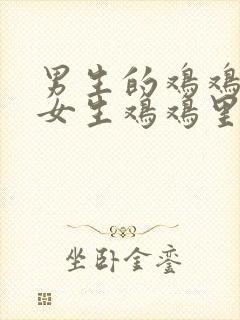 男生的鸡鸡
女生鸡鸡里
坐卧金銮